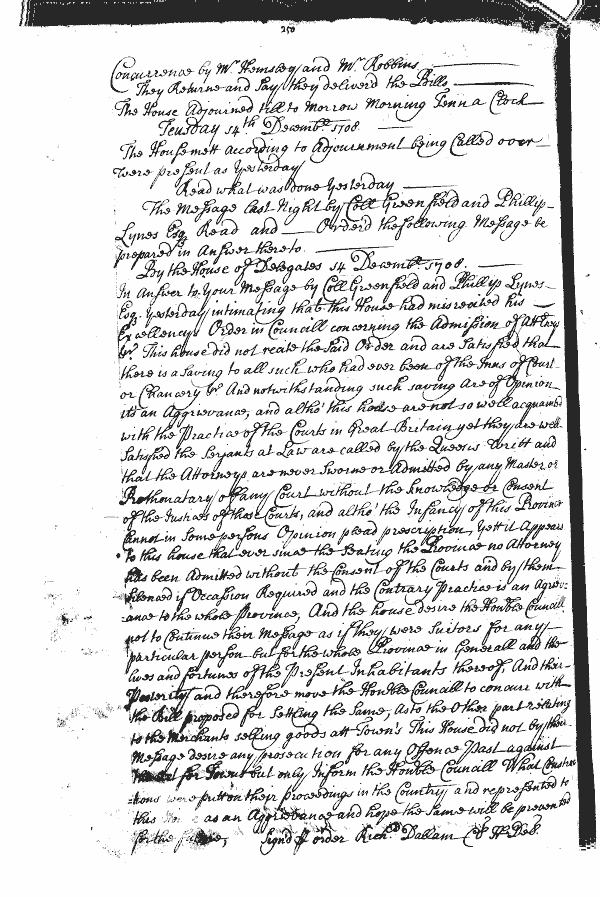 250
Concurrence by Mr. Hemsley and Mr. Robbins
They Returne and Say they deliverd the Bills
The House Adjourned till to Morrow Morning Tenn a Clock
Tuesday 14th Decembr. 1708
The House mett according to Adjournment being Called over
were present as Yesterday
Read what was done Yesterday
The Message last Night by Coll Greenfield and Phillip
Lynes Esq. Read and Orderd the following Message be
prepared in Answer thereto
By the House of Delegates 14 Decembr. 1708.
In Answer to Your Message by Coll Greenfield and Phillip Lynes
Esq. Yesterday intimating that this House had misrecited his
Excellencys Order in Councill concerning the Admission of Attorys
&c. This house did not recite the said Order and are Satisfied that
there is a Saving to all such who had ever been of the Inns of Court
or Chancery &c And notwithstanding such saving Are of Opinion
its an Aggrievance, and altho' this house are not so well acquainted
with the Practice of the Courts in Great Britain yet they are well
Satisfied the Serjants at Law are called by the Queens Writt and
that the Attorneys are never Sworne or Admitted by any Master or
Prothonatary of any Court without the knowledge or Consent
of the Justices of those Courts, and altho' the Infancy of this Province
cannot in Some persons Opinion plead prescription, yett it Appears
to this house that ever since the Seating the Province no Attorney
has been Admitted without the Consent of the Courts and by them
Silenced if Occasion Required and the Contrary Practice is an Agriev-
ance to the whole Province, And the house desire the Honble Councill
not to Continue their Message as if they were Suitors for any
particular person but for the whole Province in Generall and the
lives and fortunes of the Present Inhabitants thereof, And their
Posterity and therefore move the Honble Councill to concur with
the Bill proposed for Settling the Same, As to the Other part relating
to the Merchants selling goods att Town's This House did not by their
Message desire any prosecution for any Offence Past against
for Towns but only Inform the Honble Councill What
tions were putt on their proceedings in the Country and represented to
this as an Aggrievance and hope the Same will be prevented
for the future, Signd p order Richd. Dallam Cl H. Del.